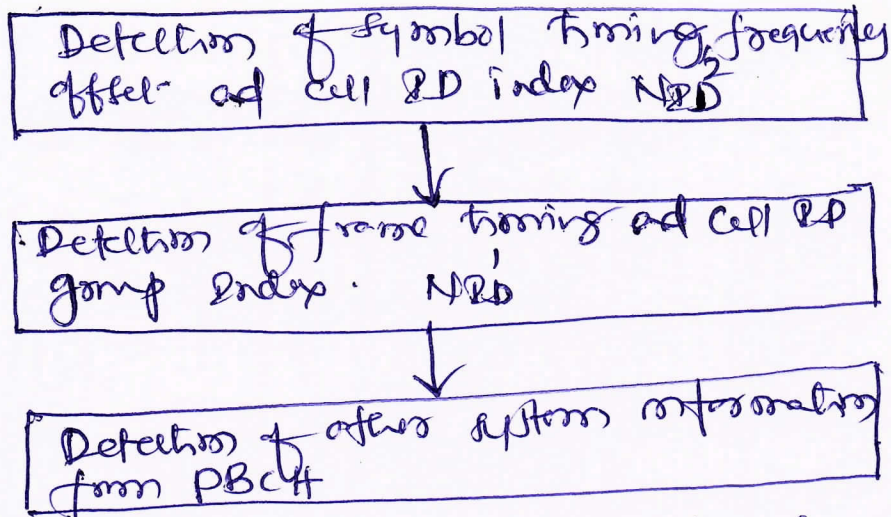 Detection of symbol timing, frequency
offset and cell ID index NID2
Detection of frame timing and cell ID
group Index. NID1
Detection of other system information
from PBCH